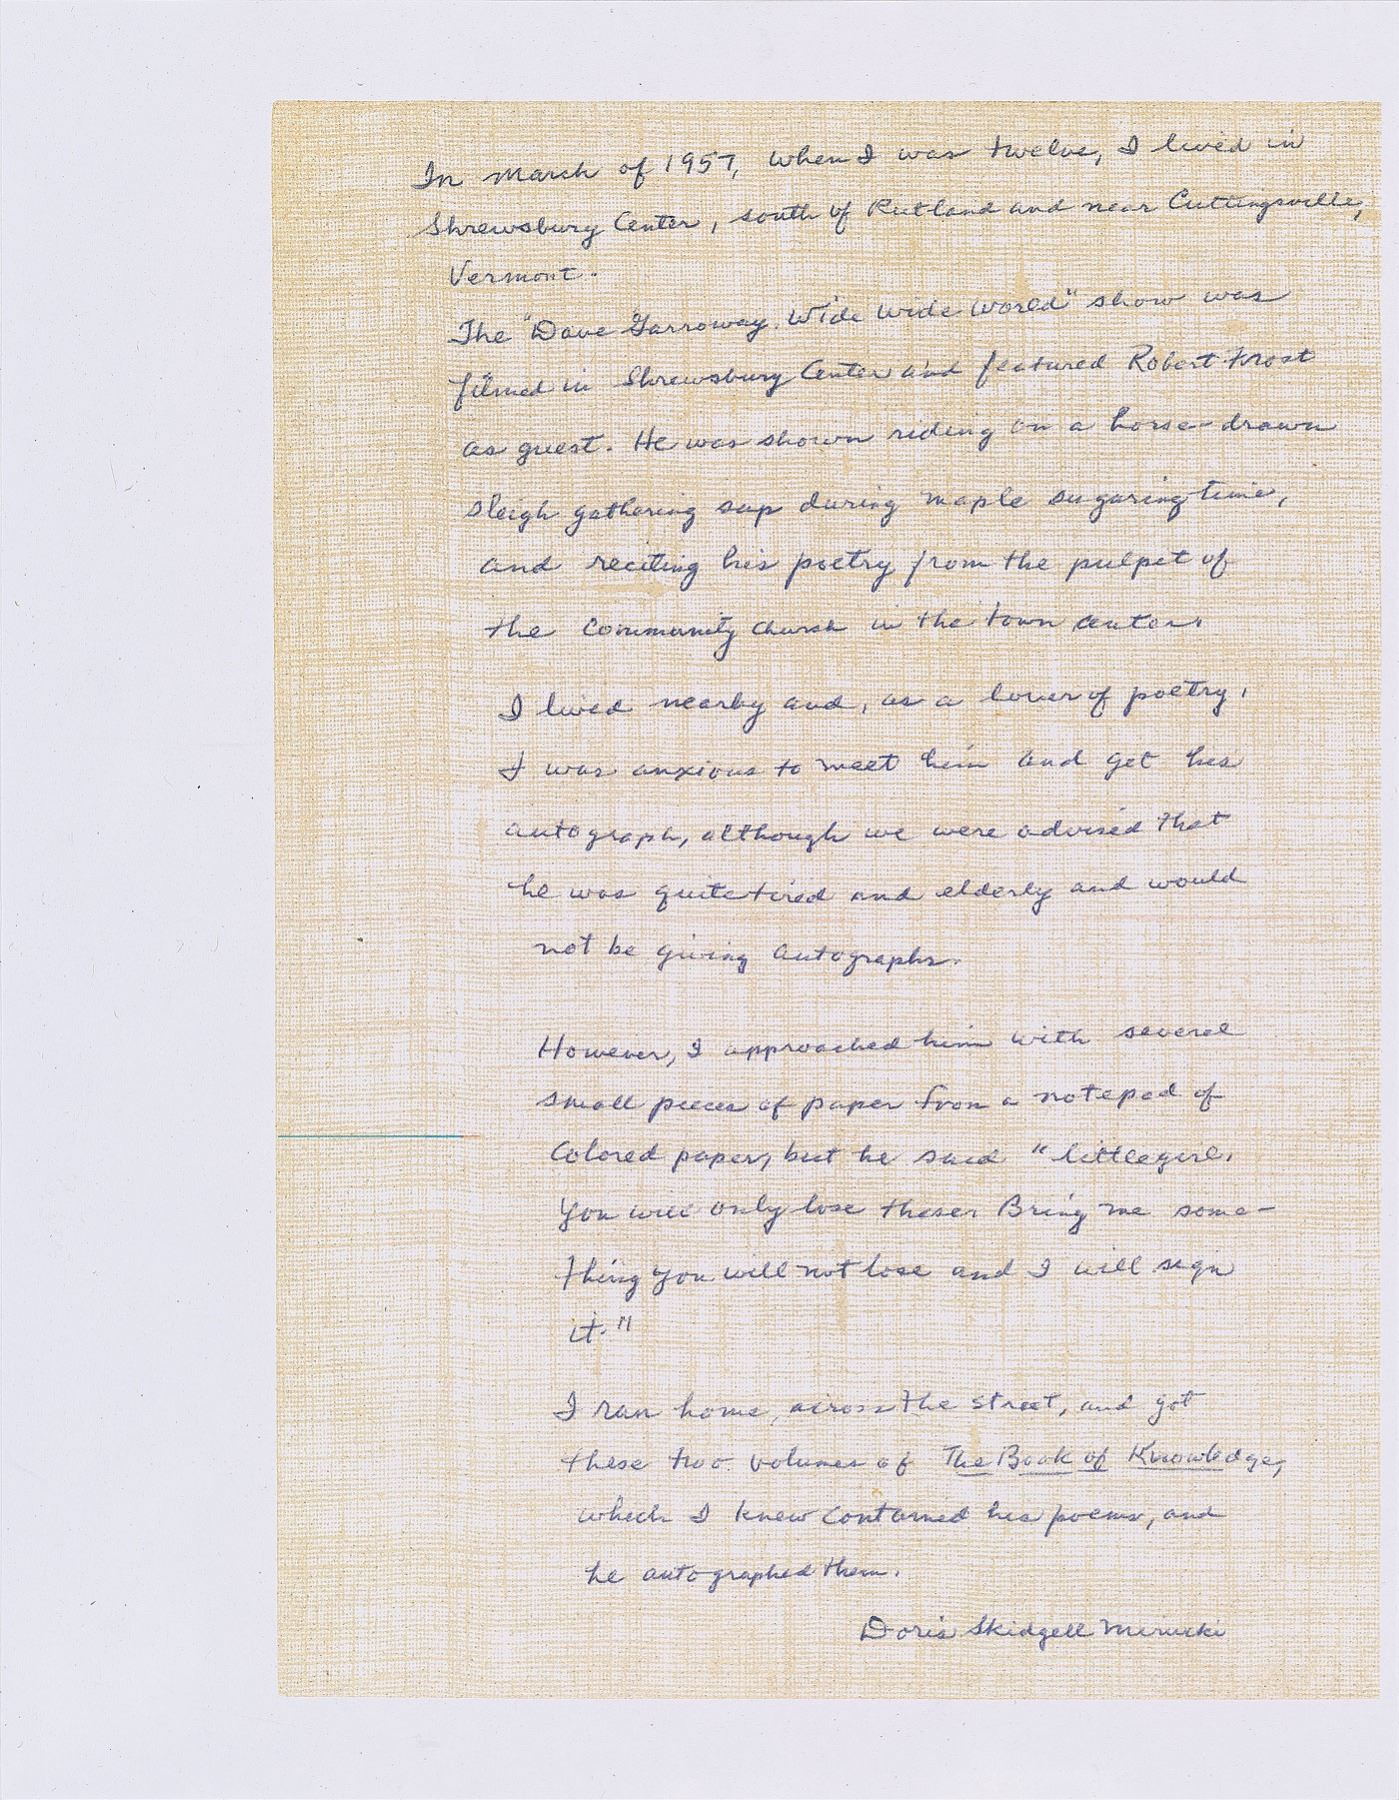 In March of 1957, when I was twelve, I lived in
Shrewsbury Center, south of Rutland and near Cuttingsville,
Vermont.
The "Dave Garroway. Wide Wide World" show was
filmed in Shrewsbury Center and featured Robert Frost
as guest. He was shown riding on a horse-drawn
sleigh gathering sap during maple sugaring time,
and reciting his poetry from the pulpet of
the Community Church in the town center.
I lived nearby and, as a lover of poetry,
I was anxious to meet him and get his
autograph, although we were advised that
he was quite tired and elderly and would
not be giving autographs.
However, I approached him with several
small pieces of paper from a notepad of
Colored paper, but he said "little girl,
you will only lose these. Bring me some-
thing you will not lose and I will sign
it."
I ran home, across the street, and got
these two volumes of The Book of Knowledge,
which I knew contained his poems, and
he autographed them.
Doris Skidgell